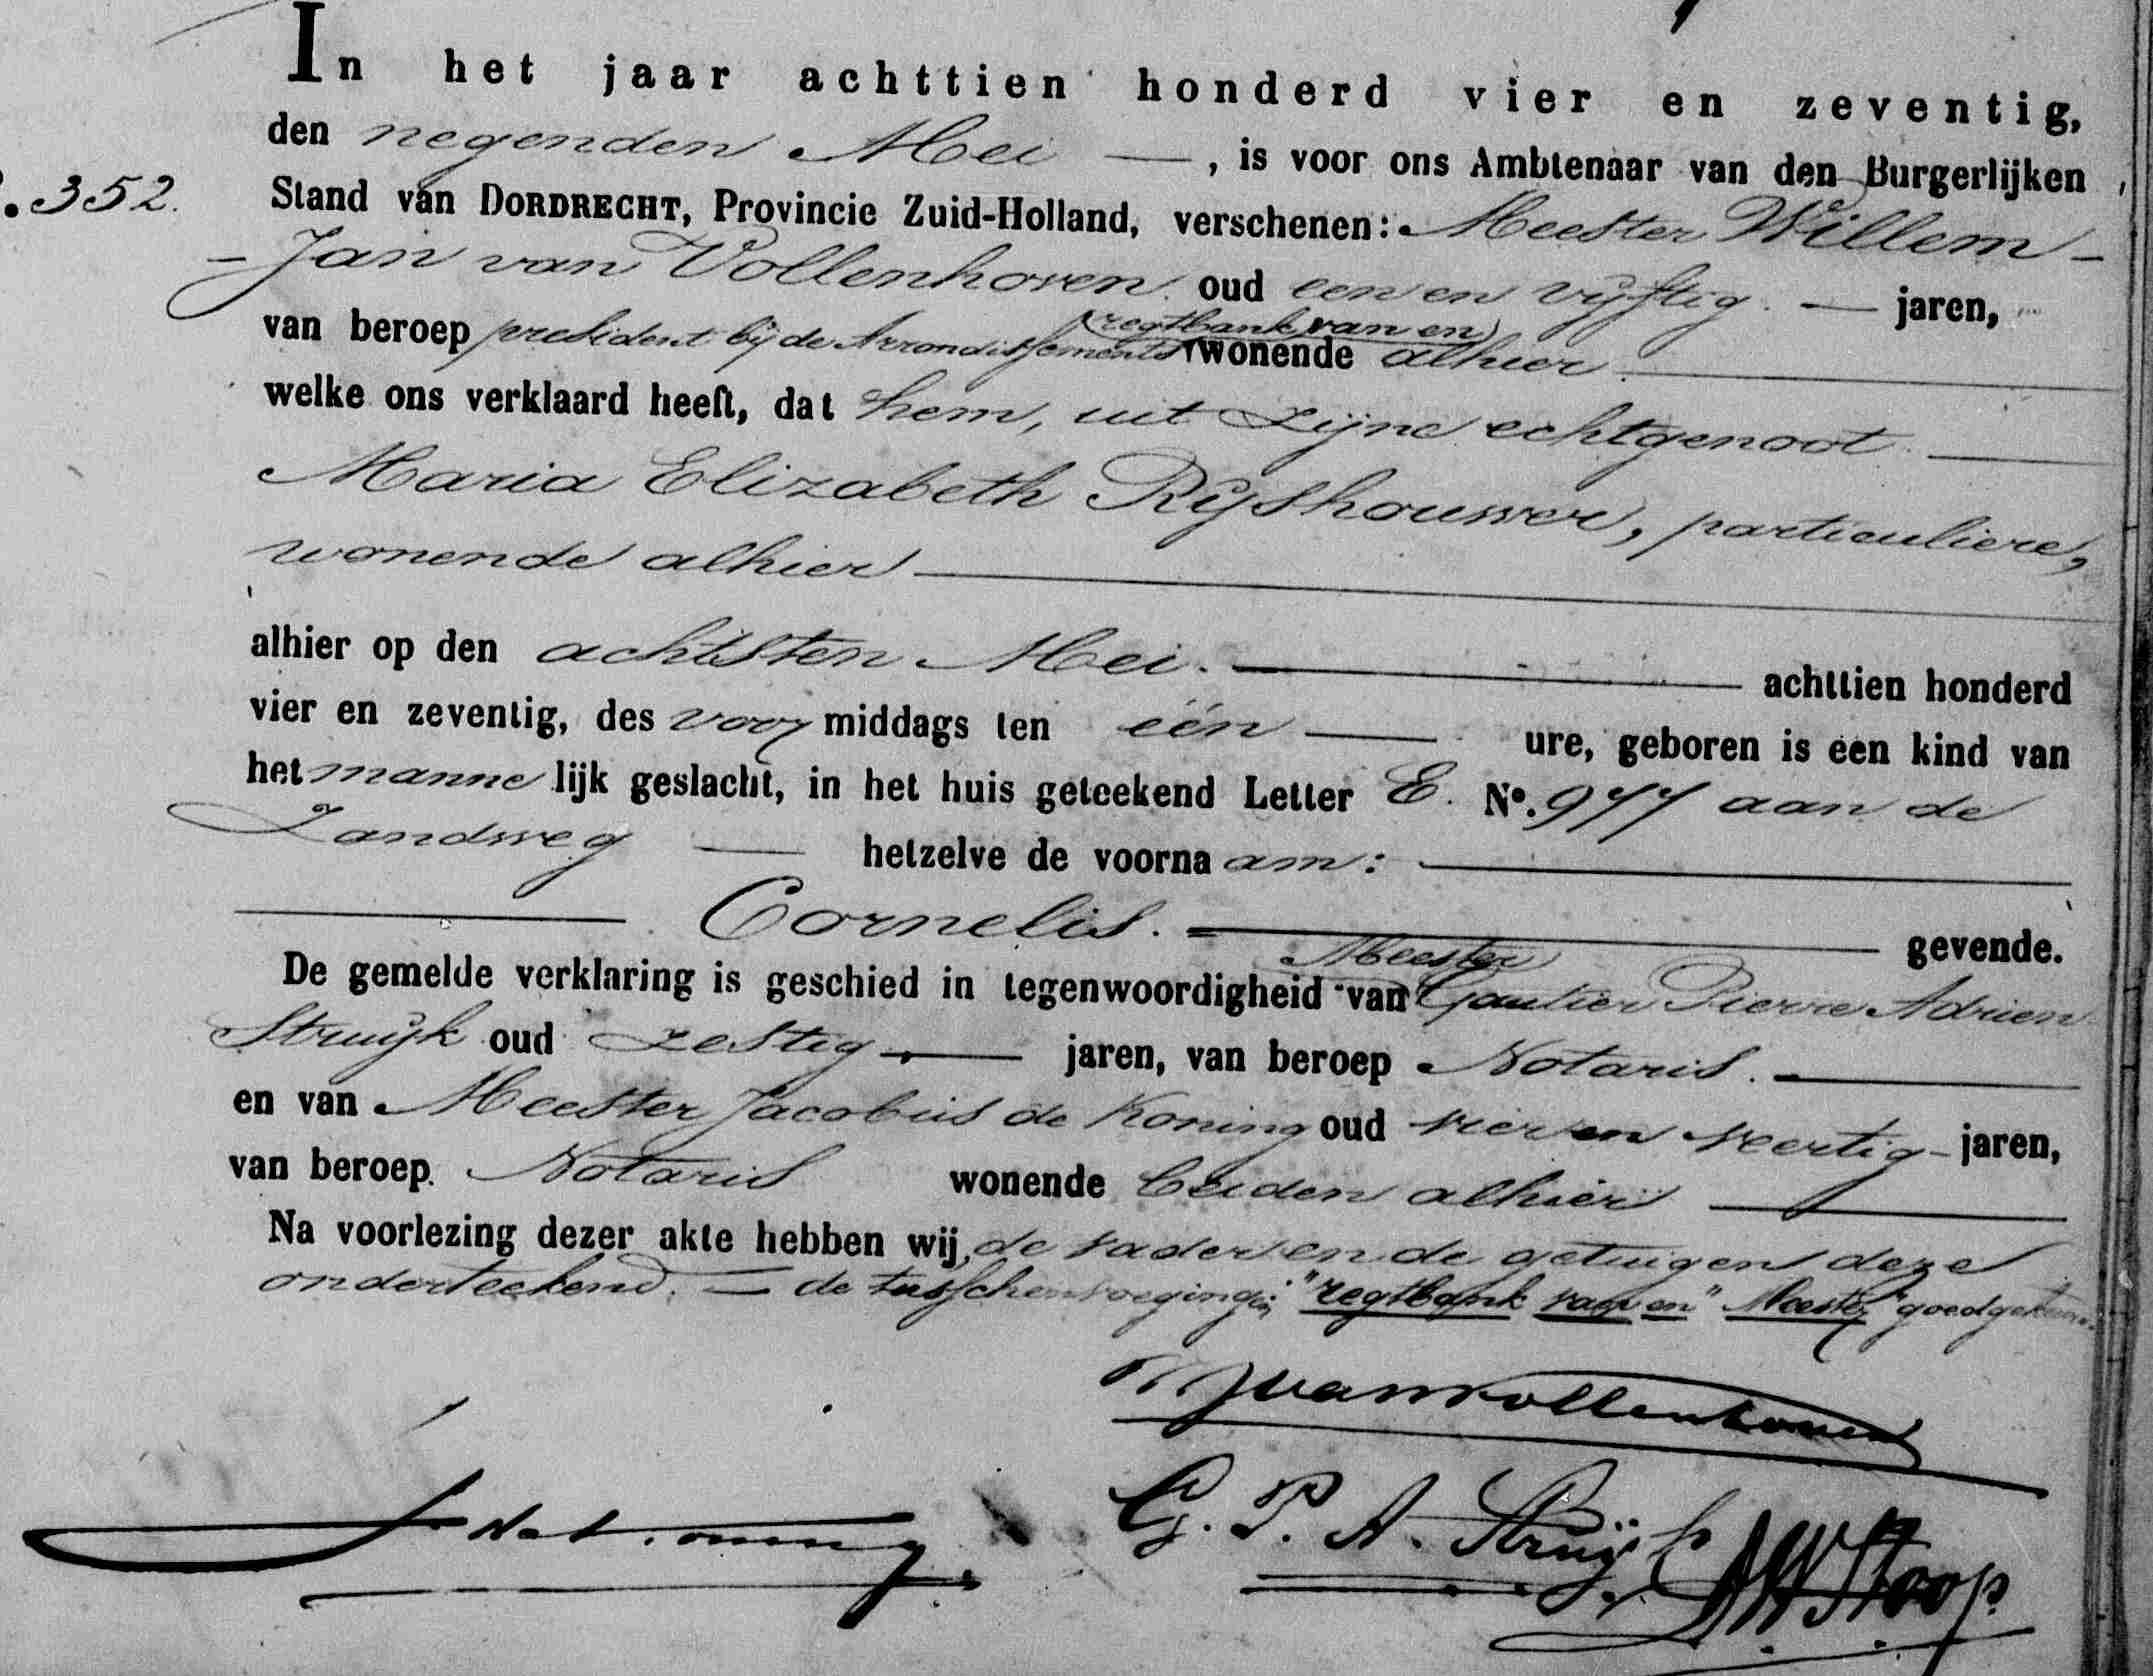 In het jaar achttien honderd vier en zeventig,
den negenden Mei —, is voor ons Ambtenaar van den Burgerlijken
.352. Stand van DORDRECHT, Provincie Zuid-Holland, verschenen: Meester Willem-
-Jan van Vollenhoven oud een en vijftig. — jaren,
regtbank van en
van beroep president bij de Arrondissements wonende alhier.
welke ons verklaard heeft, dat hem, uit zijne echtgenoot
Maria Elizabeth Rijshouwer, particuliere,
wonende alhier
alhier op den achtsten Mei. — achttien honderd
vier en zeventig, des voor middags ten één — ure, geboren is een kind van
het manne lijk geslacht, in het huis geteekend Letter E. No. 977 aan de
Zandweg — hetzelve de voorna am: —
— Cornelis. — gevende.
Meester
De gemelde verklaring is geschied in tegenwoordigheid van Gautier Pierre Adrien
Struijk oud zestig — jaren, van beroep Notaris. —
en van Meester Jacobus de Koning oud vier en veertig - jaren,
van beroep. Notaris wonende beiden alhier —
Na voorlezing dezer akte hebben wij, de vader en de getuigen deze
onderteekend. — de tusschenvoegingen "regtbank van en" "Meester" goedgekeurd.
WJvanVollenhoven
G. P. A. Struijk
J de Koning
Stoop